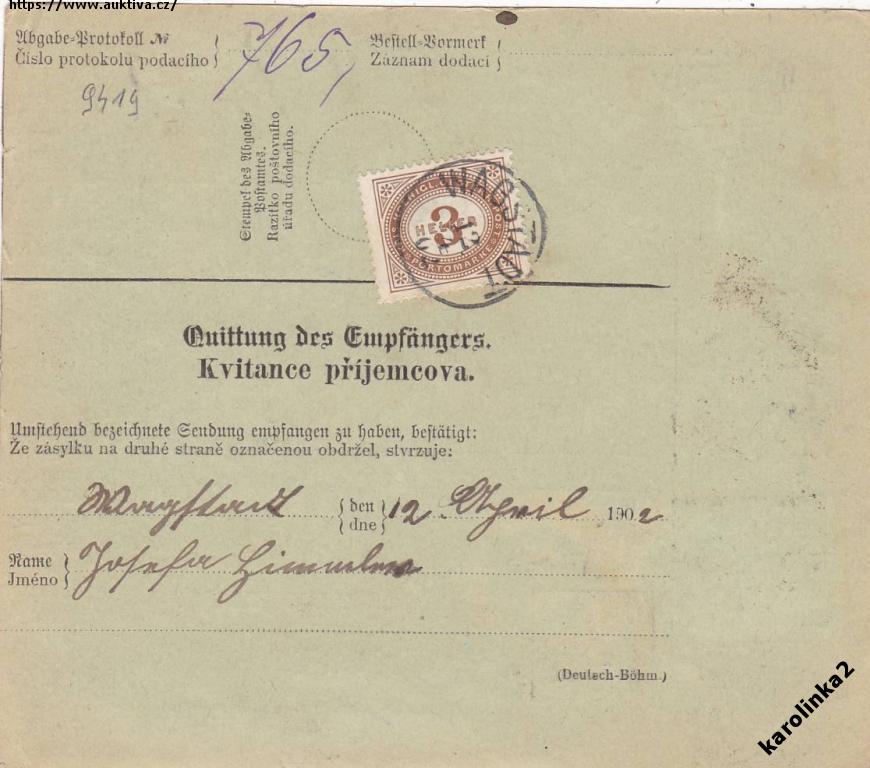 https://www.auktiva.cz/
Abgabe-Protokoll №
Číslo protokolu podacího
765
Bestell-Vormerk
Záznam dodací
9419
Stempel des Abgabe-
Postamtes.
Razítko poštovního
úřadu dodacího.
3
HELLER
PORTOMARKE
WAGSTADT
Quittung des Empfängers.
Kvitance příjemcova.
Umstehend bezeichnete Sendung empfangen zu haben, bestätigt:
Že zásylku na druhé straně označenou obdržel, stvrzuje:
Wagstadt den 12 April 1902
dne
Name Josefa Himmler
Jméno
(Deutsch-Böhm.)
karolinka2